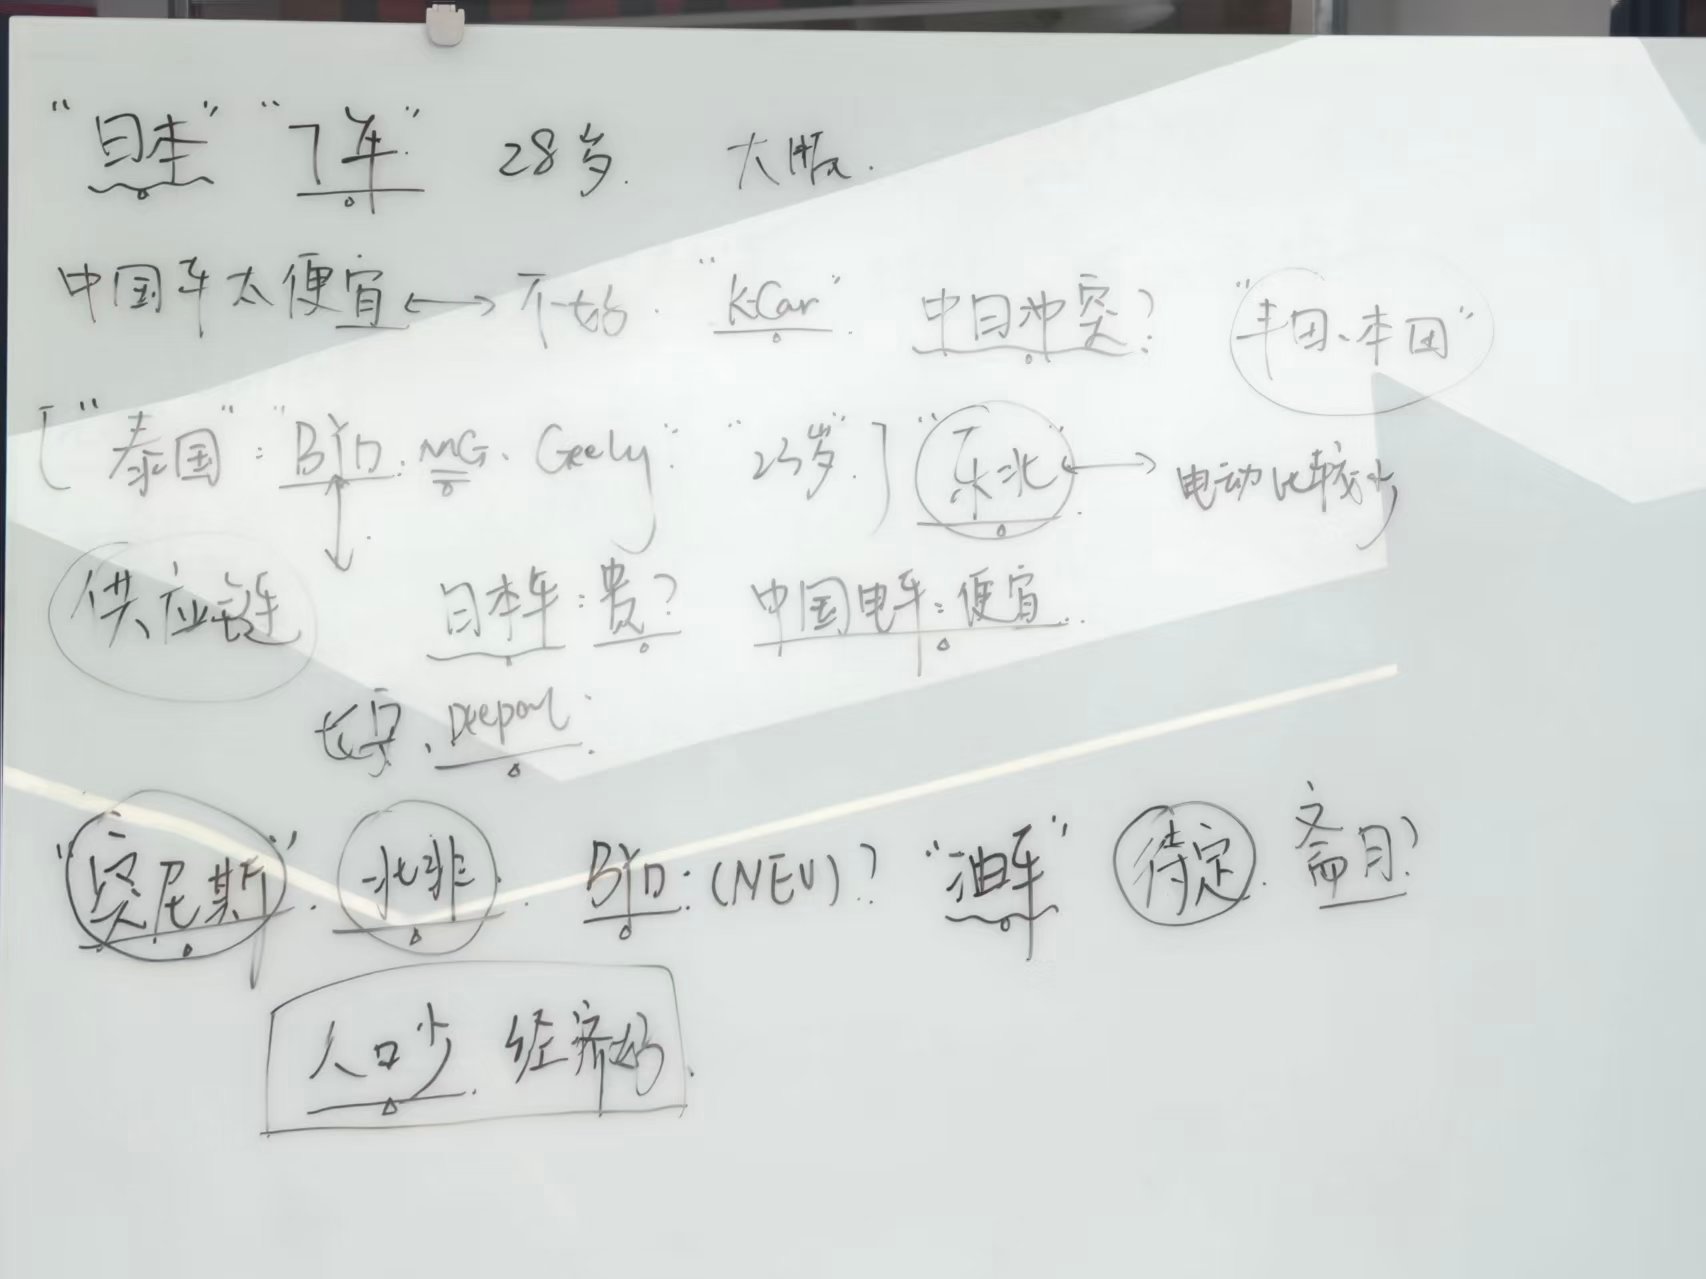 “日本” “7年” 28岁. 大阪.
中国车太便宜 ←→ 不好. “K-Car”. 中日冲突? “丰田、本田”
[“泰国”: “BYD. MG、Geely” “23岁”.] “东北” ←→ 电动比较少
供应链 日本车:贵? 中国电车:便宜.
长安、Deepal.
“突尼斯”. 北非. BYD:(NEV)? “油车” 待定. 斋月?
人口少. 经济好.